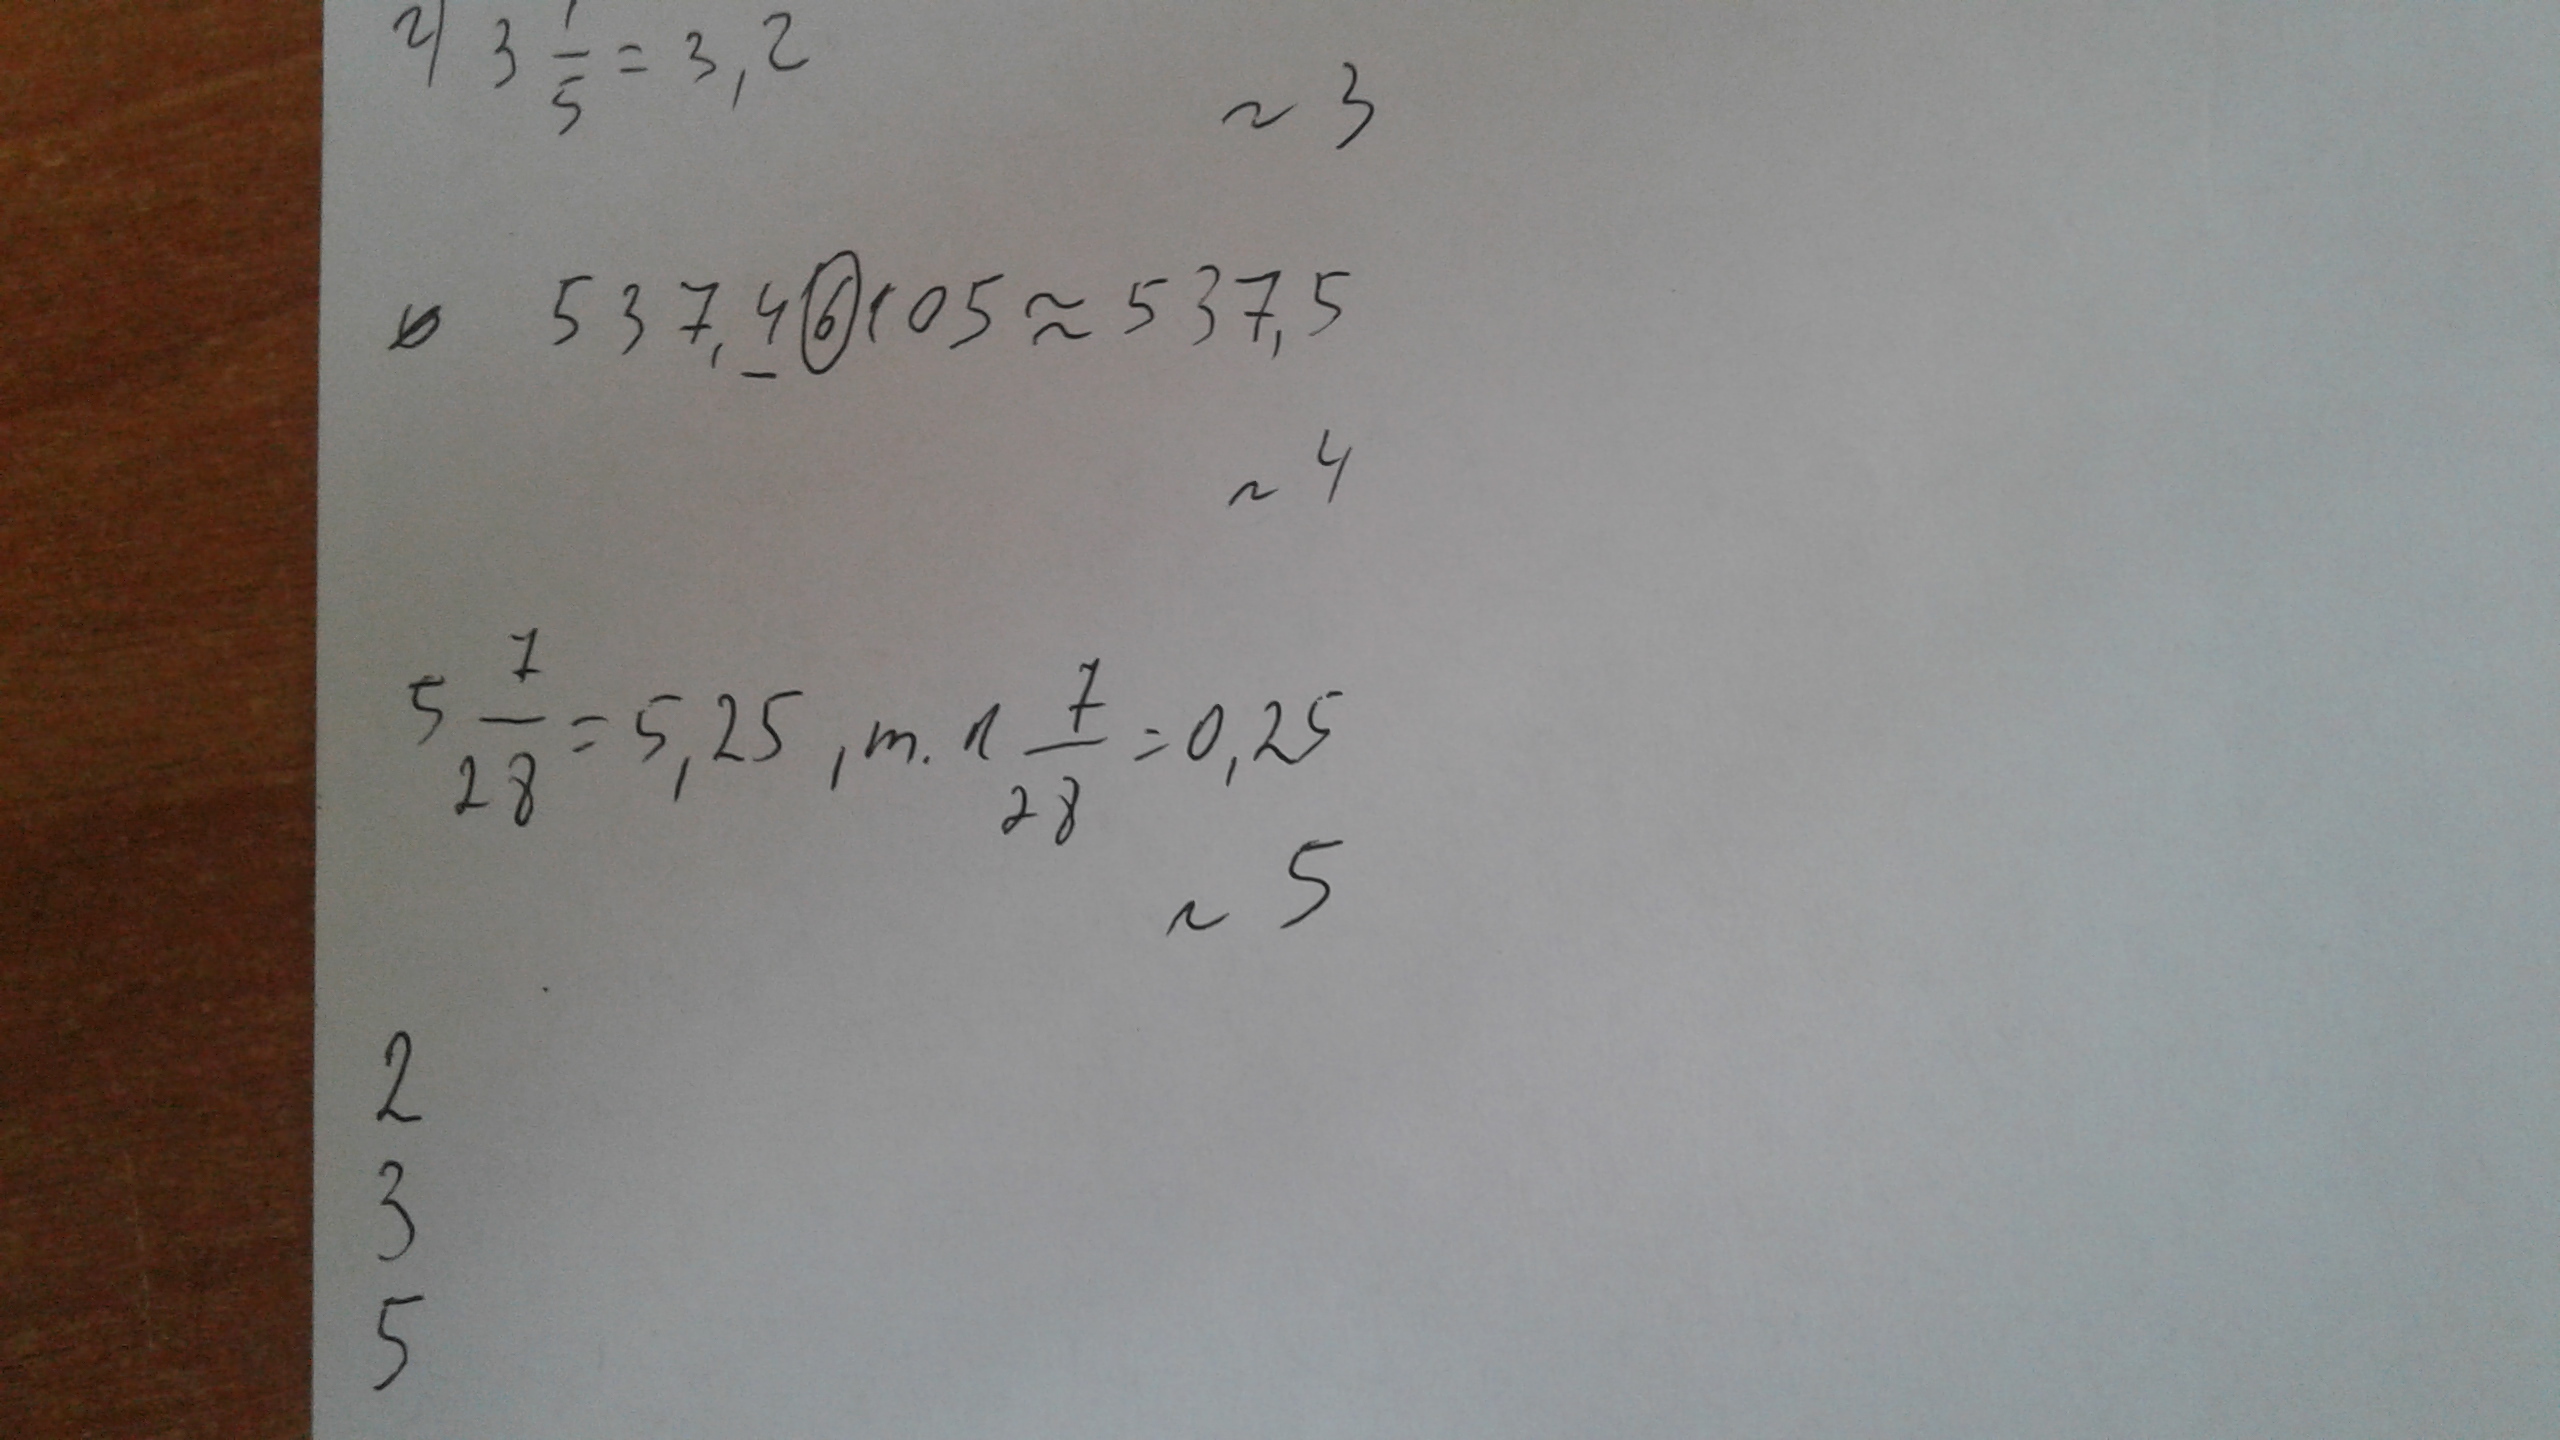 г) 3 1/5 = 3,2
~ 3
537,46105 ≈ 537,5
~ 4
5 7/28 = 5,25, т. к 7/28 = 0,25
~ 5
2
3
5